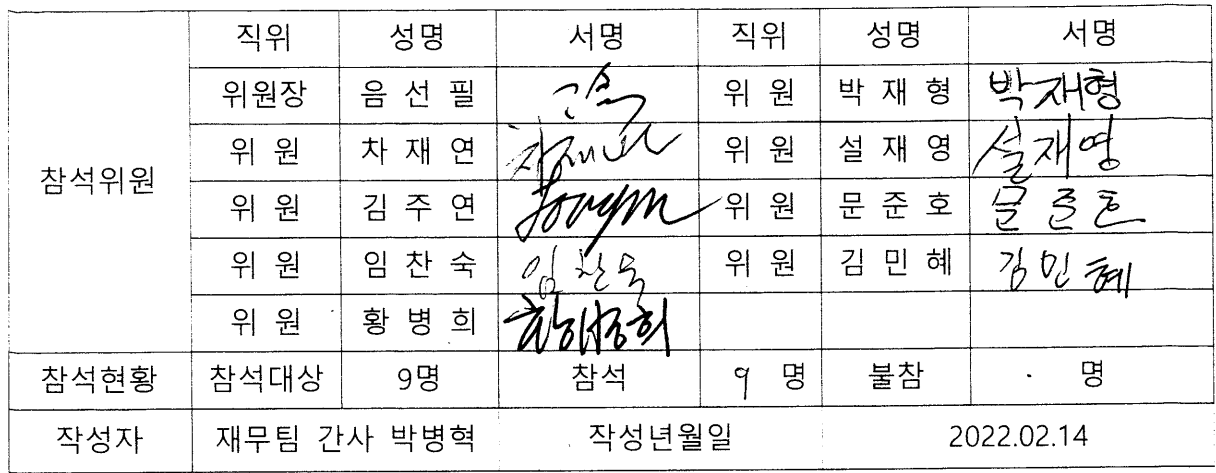 직위 성명 서명 직위 성명 서명
참석위원
위원장 음 선 필 위 원 박 재 형 박재형
위 원 차 재 연 차재연 위 원 설 재 영 설재영
위 원 김 주 연 위 원 문 준 호 문준호
위 원 임 찬 숙 임찬숙 위 원 김 민 혜 김민혜
위 원 황 병 희 황병희
참석현황 참석대상 9명 참석 9 명 불참 · 명
작성자 재무팀 간사 박병혁 작성년월일 2022.02.14